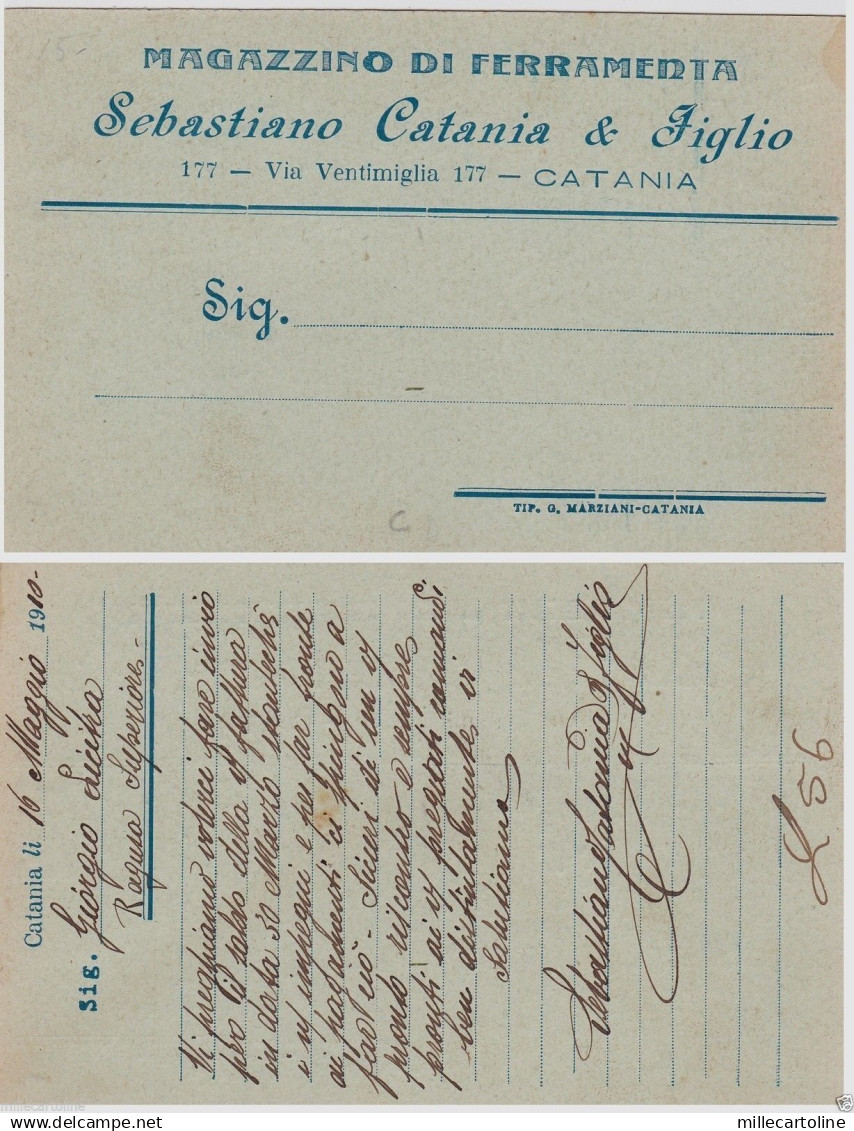 15-
MAGAZZINO DI FERRAMENTA
Sebastiano Catania & Figlio
177 — Via Ventimiglia 177 — CATANIA
Sig.
C
TIP. G. MARZIANI-CATANIA
Catania li 16 Maggio 1910-
Sig. Giorgio
Ragusa Superiore-
Vi preghiamo volerci fare invio
pro il saldo della fattura
in data 30 Marzo
i impegni e per far fronte
ai pagamenti ci spingono a
far ciò - Sicuri di un
pronto riscontro e sempre
pronti ai pregiati comandi
ben distintamente vi
salutiamo
Sebastiano Catania & Figlio
L 56
millecartoline
millecartoline